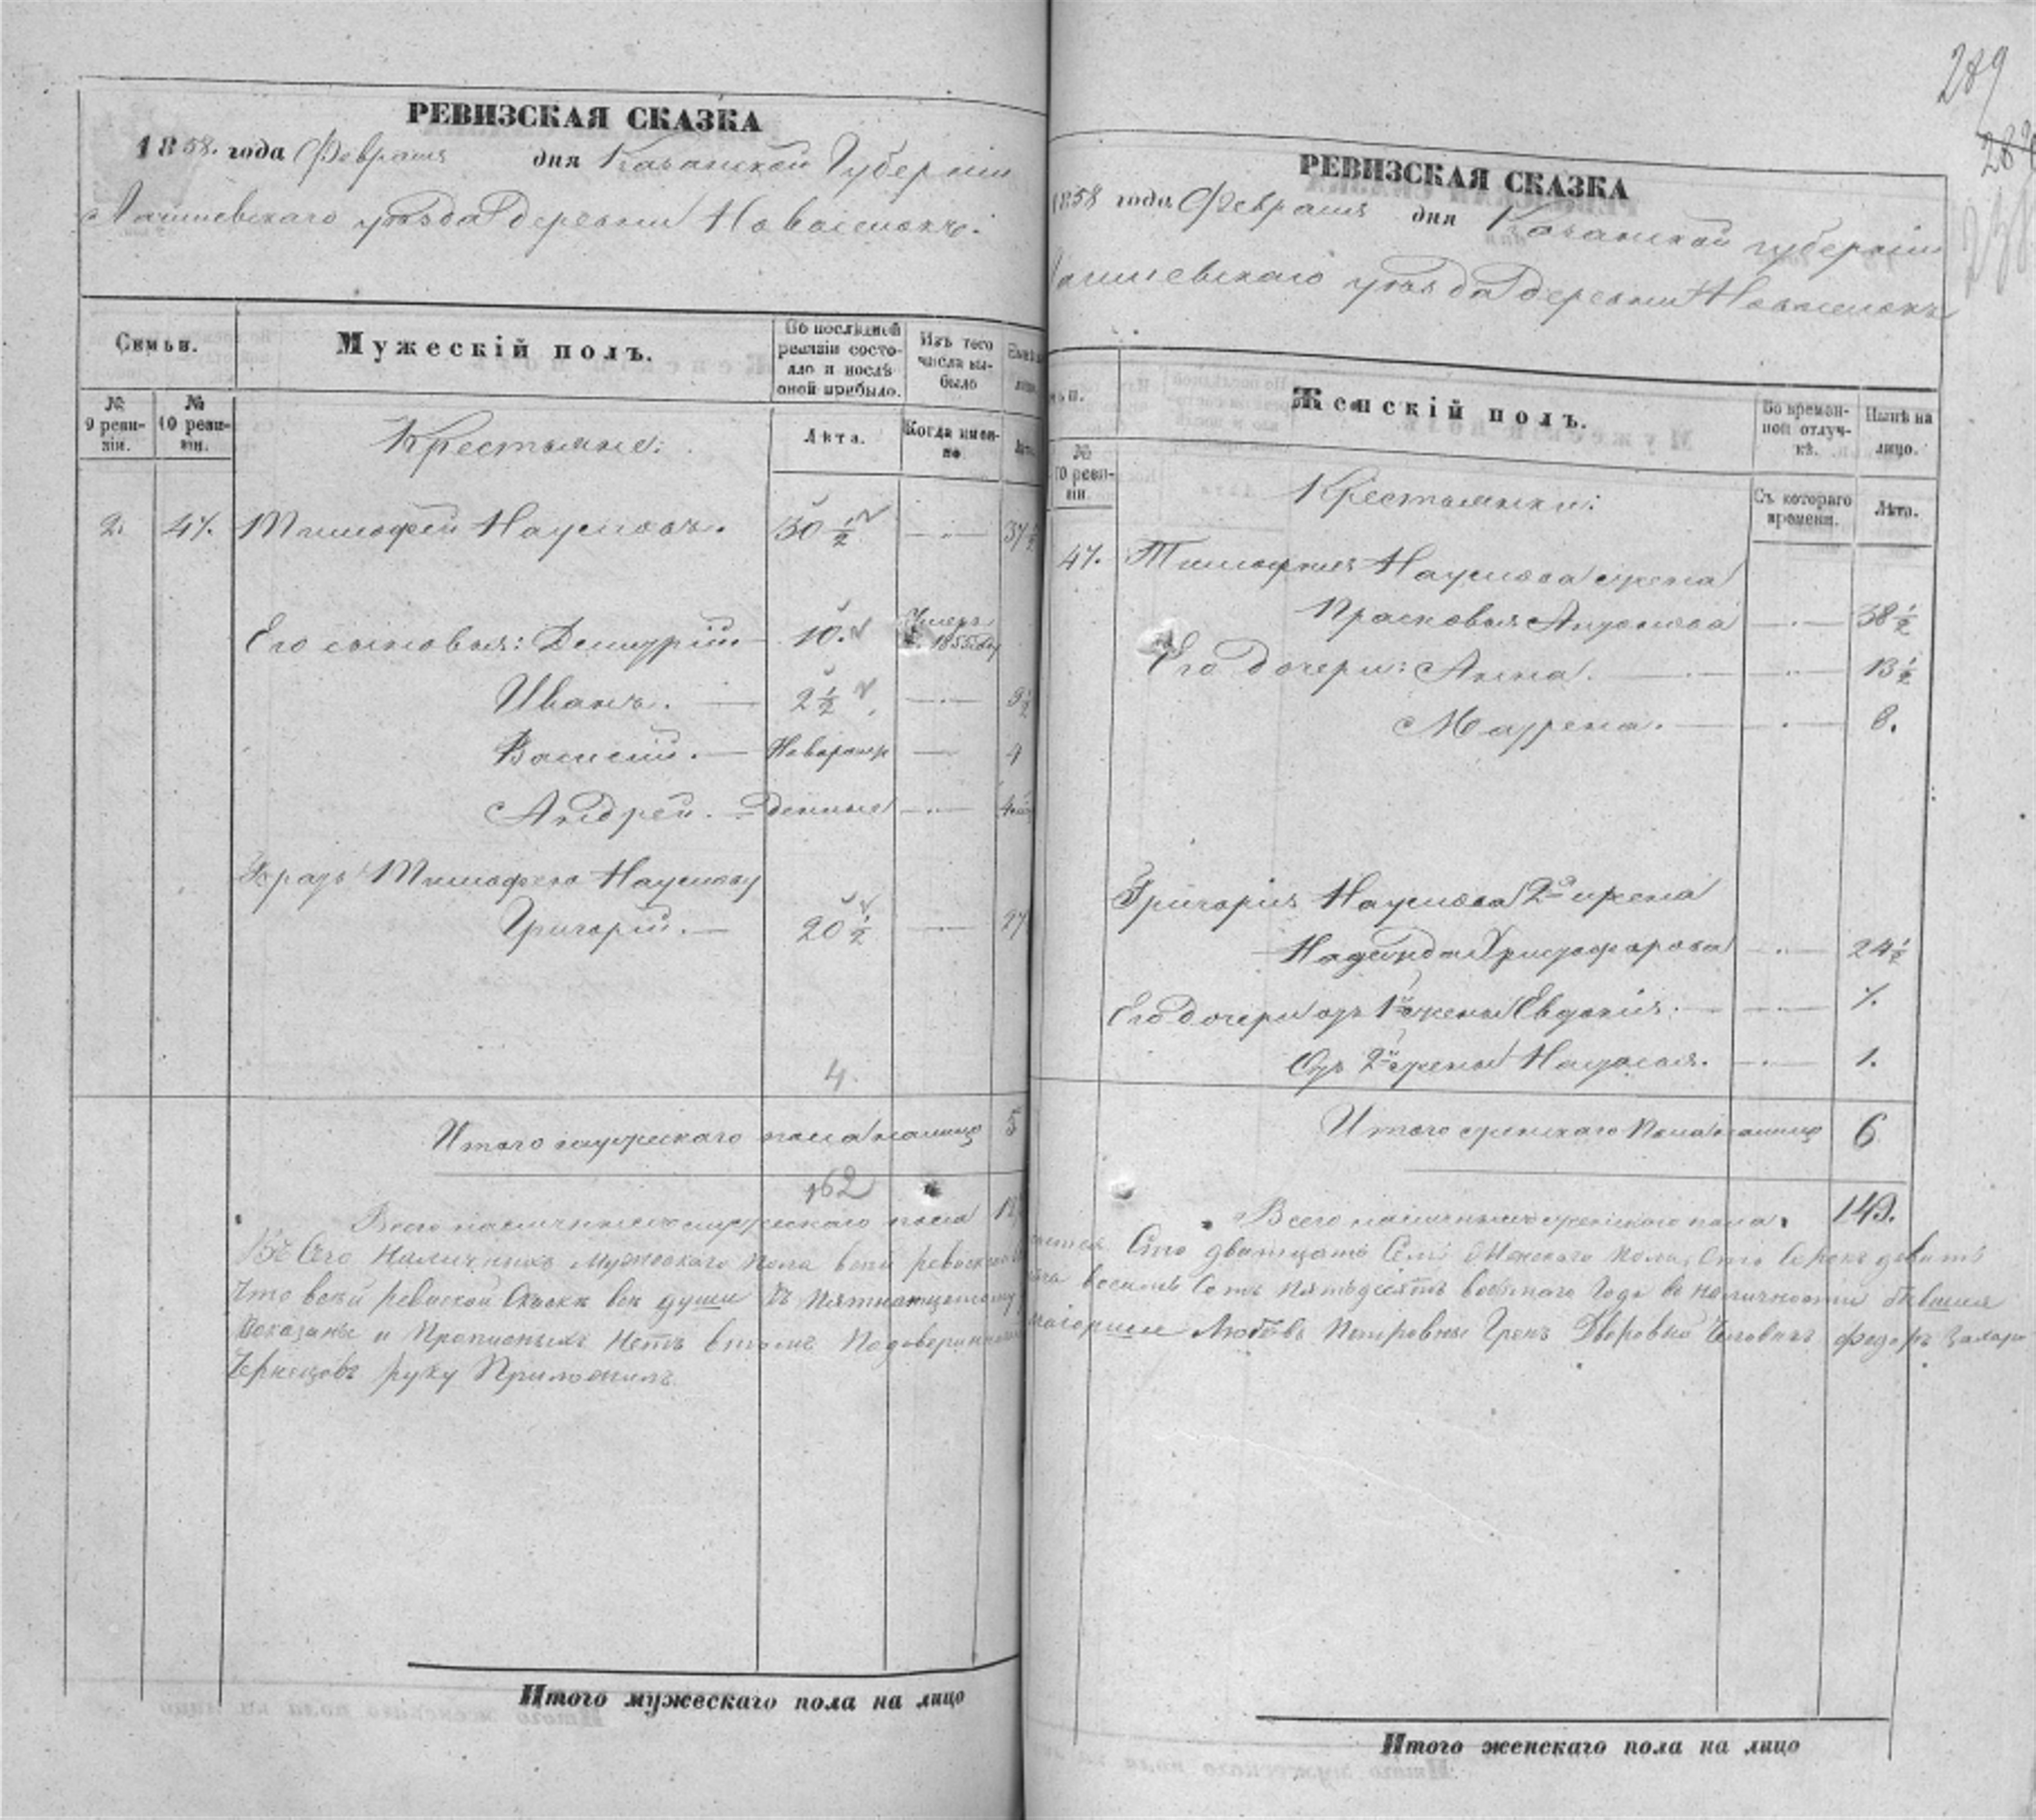 РЕВИЗСКАЯ СКАЗКА
1858. года Февраля дня Казанской Губерніи
Лаишевскаго уѣзда деревни Новоселокъ.
Семьи.
Мужескій полъ.
По послѣдней ревизіи состояло и послѣ оной прибыло.
Изъ того числа выбыло
№ 9 ревизіи.
№ 10 ревизіи.
Крестьяне:
Лѣта.
Когда именно
2. 47. Тимофей Наумовъ. 30 1/2 37 1/2
Его сыновья: Дмитрій 10. Умеръ въ 1855 году
Иванъ. 2 1/2 9 1/2
Василій. Новорож 4
Андрей. денные
Братъ Тимофея Наумова
Григорій. 20 1/2 27
4.
Итого мужескаго пола налицо 5
162
Всего наличныхъ мужескаго пола
Въ Сего Наличныхъ Мужескаго Пола всей
Что всей ревиской Скаски все души къ Пятнатцатому
Показаны и Прописныхъ Нетъ втомъ
Чернецовъ руку Приложилъ
Итого мужескаго пола на лицо
289
РЕВИЗСКАЯ СКАЗКА
1858 года Февраля дня Казанской губерніи
Лаишевскаго уѣзда деревни Новоселокъ
Женскій полъ.
Во временной отлучкѣ.
Нынѣ на лицо.
№ 10 ревизіи.
Крестьянки:
Съ котораго времени.
Лѣта.
47. Тимофея Наумова жена
Прасковья Антонова 38 1/2
Его дочери: Анна. 13 1/2
Матрена. 8.
Григорія Наумова 2я жена
Надежда Христофорова 24 1/2
Его дочери отъ 1й жены Евдокія. 7.
Отъ 2й жены Наталья. 1.
Итого женскаго пола налицо 6
Всего наличныхъ женскаго пола. 149.
Сто дватцать Семь Женскаго Пола, Сто Сорокъ девять
восимъ Сотъ Пятьдесятъ восьмаго Года в наличности бывшия
маіорши Любовь Петровны Грен Дворовой Человекъ Федоръ
Итого женскаго пола на лицо